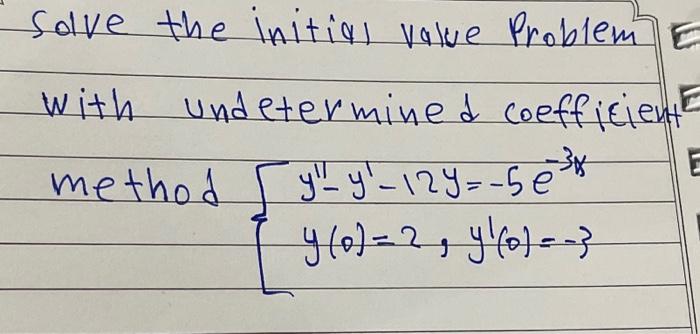 Solve the initial value Problem
with undetermined coefficient
method { y'' - y' - 12y = -5e^{-3x}
y(0) = 2, y'(0) = -3